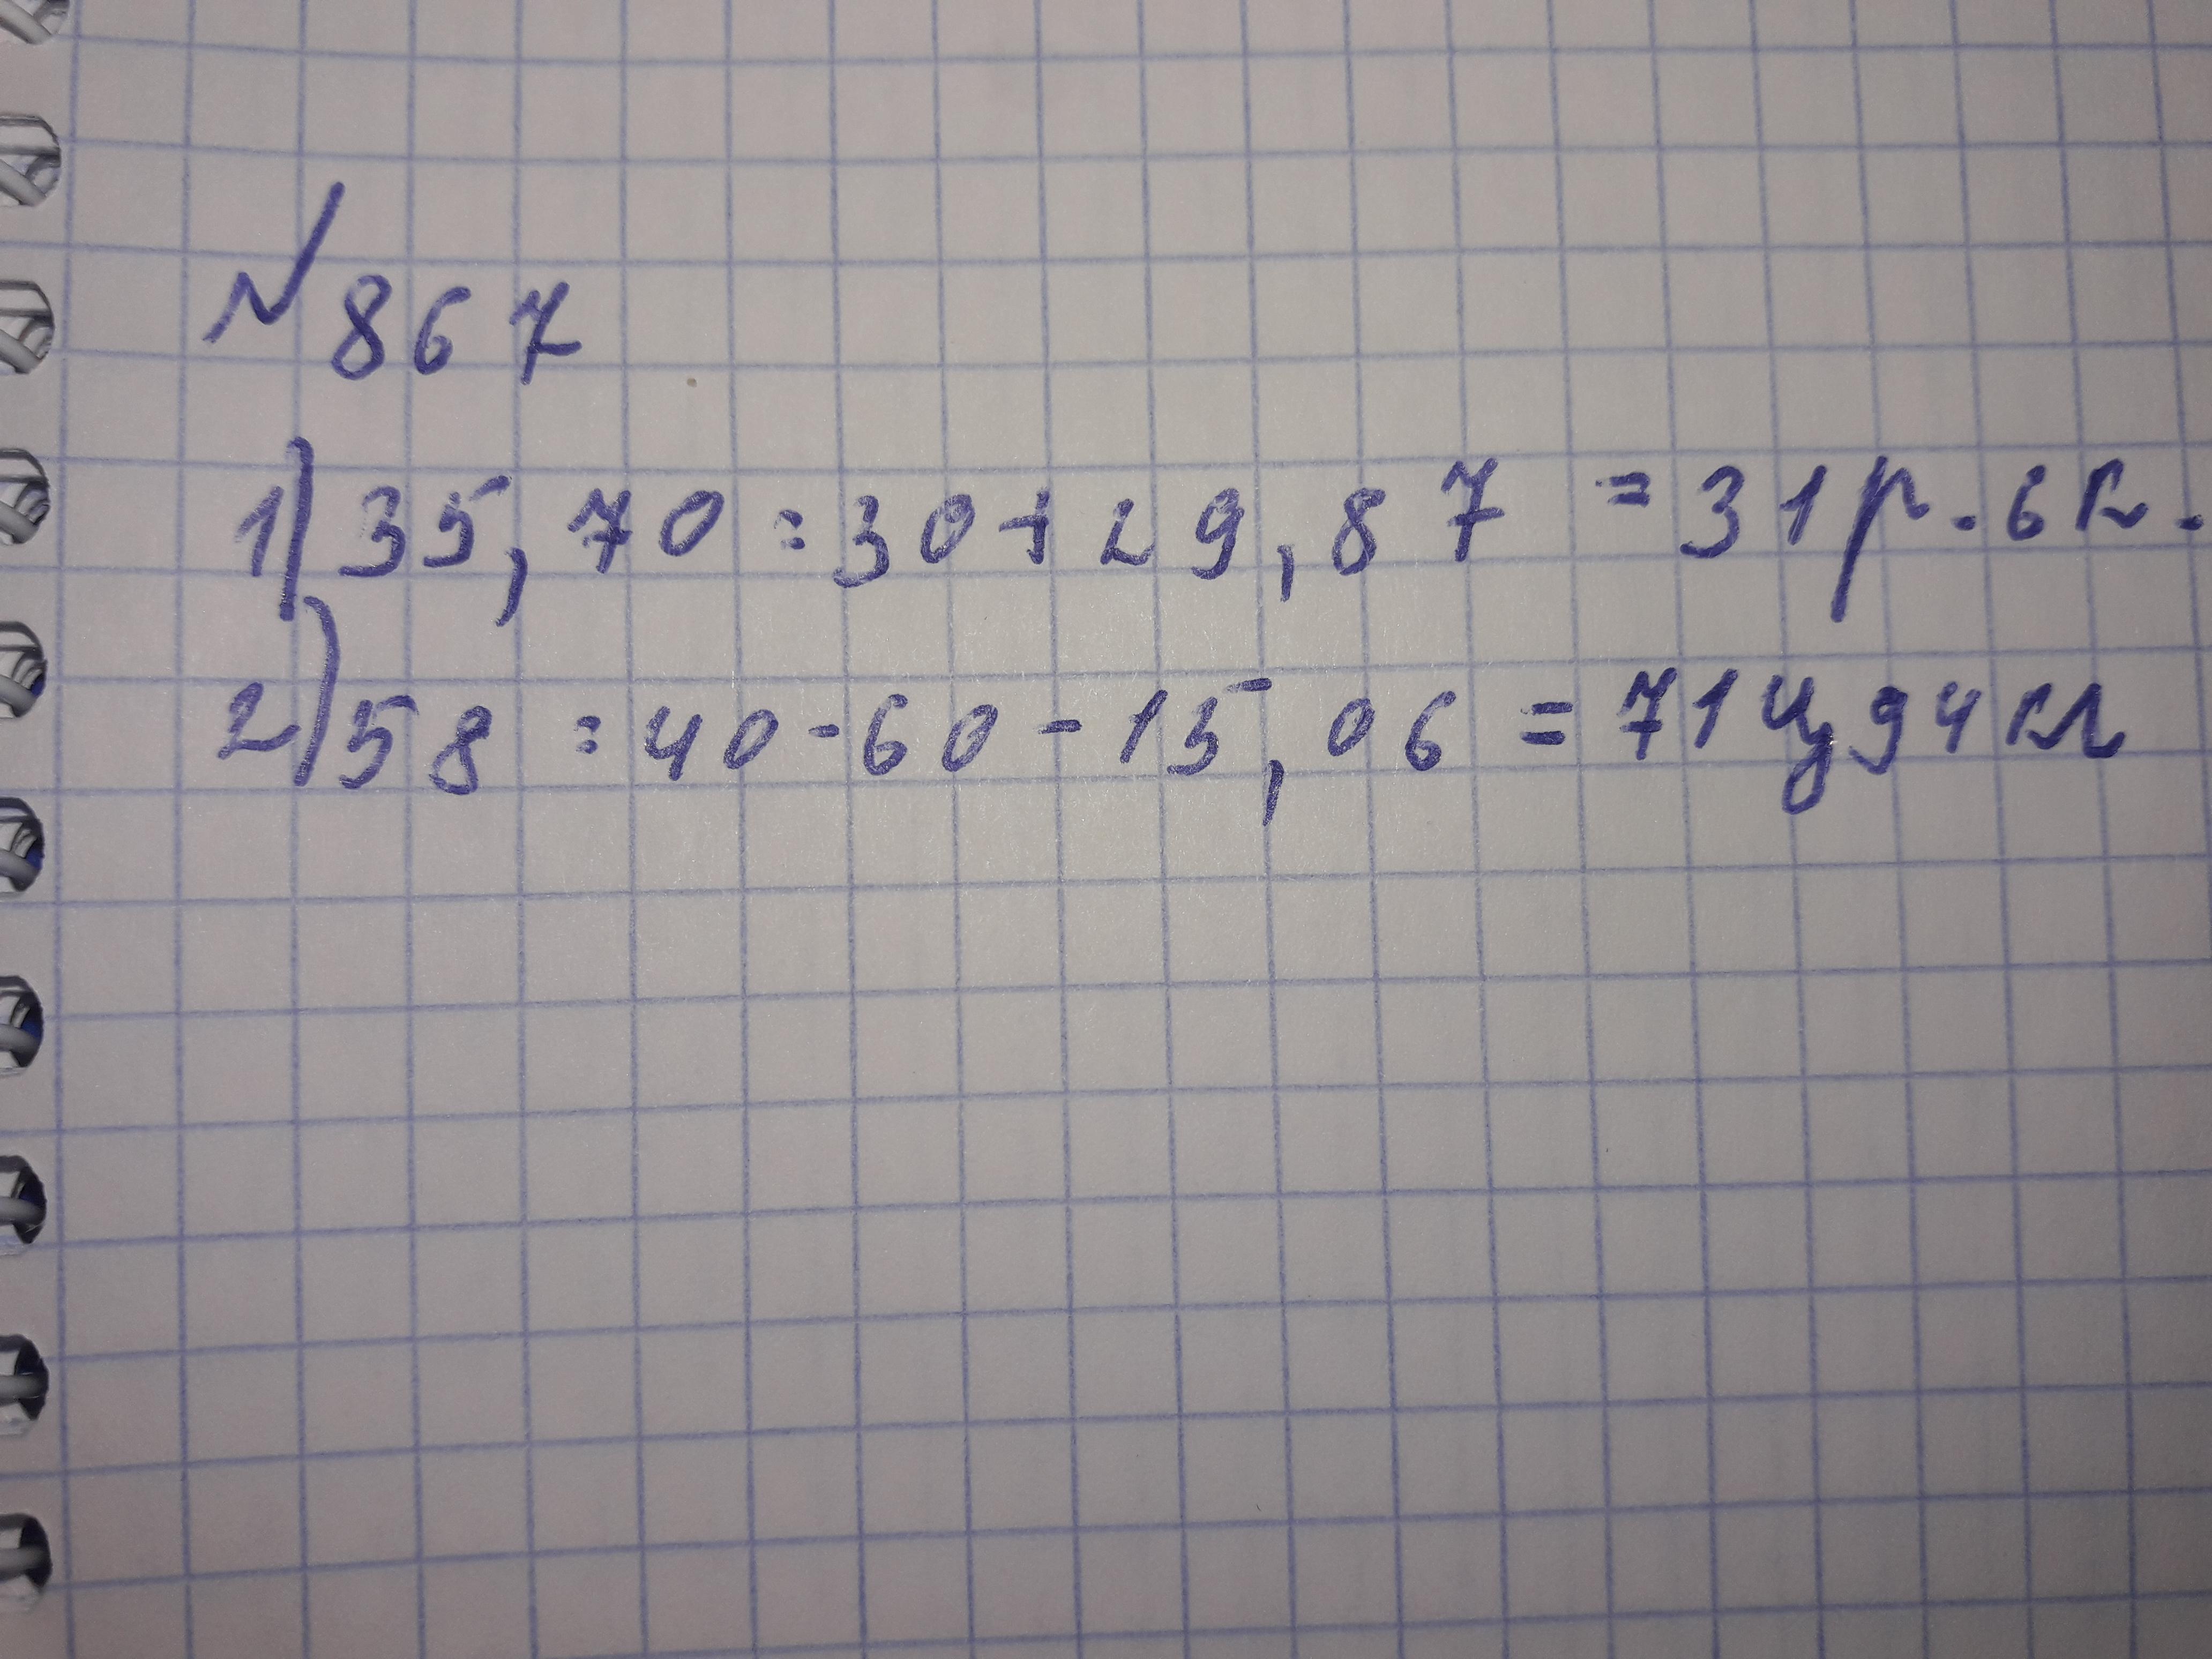 № 867
1) 35,70 : 30 + 29,87 = 31 р. 6 к.
2) 58 : 40 - 60 - 15,06 = 71 ц 94 кг